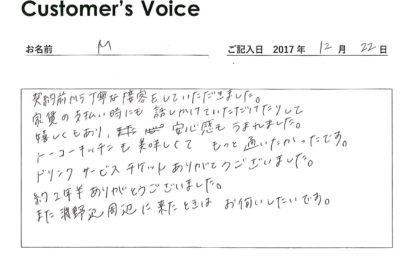 Customer's Voice
お名前 M ご記入日 2017年 12月 22日
契約前から丁寧な接客をしていただきました。
家賃の支払い時にも話しかけていただけたりして
嬉しくもあり、また 安心感もうまれました。
トーコーキッチンも美味しくて もっと通いたかったです。
ドリンク サービス チケット ありがとうございました。
約2年半ありがとうございました。
また淵野辺周辺に来たときは お伺いしたいです。